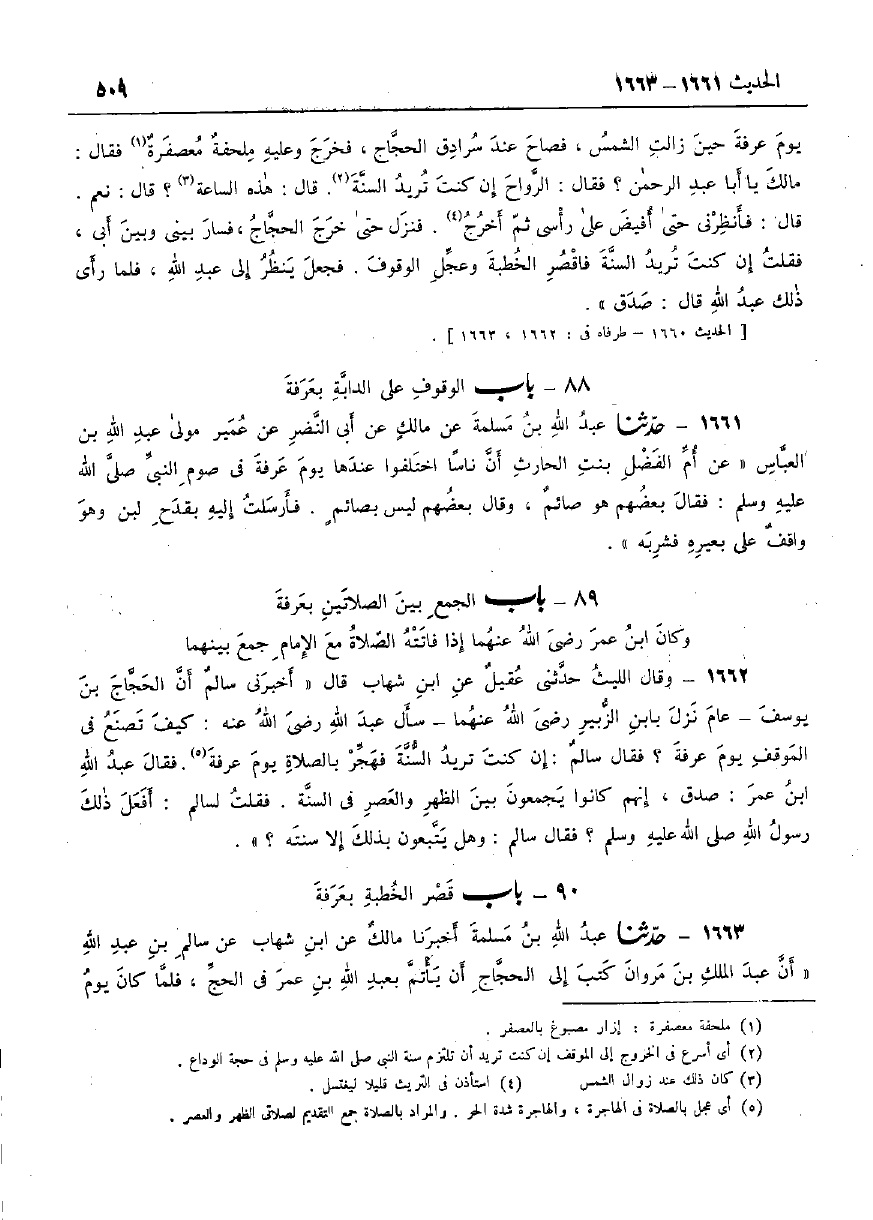 الحديث ١٦٦١ – ١٦٦٣
٥٠٩
يومَ عرفةَ حينَ زالتِ الشمسُ ، فصاحَ عندَ سُرادِقِ الحجَّاجِ ، فخرَجَ وعليهِ مِلحفةٌ مُعصفَرةٌ(١) فقال :
مالكَ يا أبا عبدِ الرحمٰنِ ؟ فقال : الرَّواحَ إن كنتَ تُريدُ السنَّةَ(٢). قال : هٰذه الساعةَ(٣) ؟ قال : نعم .
قال : فأَنظِرْنى حتىٰ أُفيضَ علىٰ رأْسى ثمّ أَخرُجُ(٤) . فنزَل حتىٰ خرَجَ الحجَّاجُ ، فسارَ بينى وبينَ أبى ،
فقلتُ إن كنتَ تُريدُ السنَّةَ فاقْصُرِ الخُطبةَ وعجِّلِ الوقوفَ . فجعلَ يَنظُرُ إلى عبدِ اللهِ ، فلما رأى
ذٰلك عبدُ اللهِ قال : صَدَق » .
[ الحديث ١٦٦٠ – طرفاه فى : ١٦٦٢ ، ١٦٦٣ ] .
٨٨ – باب الوقوفِ على الدابَّةِ بعَرَفةَ
١٦٦١ – حدّثنا عبدُ اللهِ بنُ مَسلمةَ عن مالكٍ عن أبى النَّضرِ عن عُمَيرٍ مولىٰ عبدِ اللهِ بن
العبَّاسِ « عن أمِّ الفَضْلِ بنتِ الحارثِ أنَّ ناسًا اختَلفوا عندَها يومَ عَرفةَ فى صومِ النبيِّ صلَّى الله
عليهِ وسلم : فقالَ بعضُهم هو صائمٌ ، وقال بعضُهم ليس بصائمٍ . فأرسَلتُ إليهِ بقدَحِ لبنٍ وهوَ
واقفٌ على بعيرِهِ فشرِبَه » .
٨٩ – باب الجمعِ بينَ الصلاتَينِ بعَرفةَ
وكانَ ابنُ عمرَ رضىَ اللهُ عنهُما إذا فاتَتْهُ الصّلاةُ معَ الإمامِ جمعَ بينهما
١٦٦٢ – وقال الليثُ حدَّثنى عُقيلٌ عنِ ابنِ شهاب قال « أخبرَنى سالمٌ أنَّ الحَجَّاجَ بنَ
يوسفَ – عامَ نَزلَ بابنِ الزُّبيرِ رضىَ اللهُ عنهُما – سأل عبدَ اللهِ رضىَ اللهُ عنه : كيفَ تَصنَعُ فى
المَوقفِ يومَ عرفةَ ؟ فقال سالمٌ : إن كنتَ تريدُ السُّنَّةَ فهَجِّرْ بالصلاةِ يومَ عرفةَ(٥). فقالَ عبدُ اللهِ
ابنُ عمرَ : صدق ، إنهم كانوا يَجمعونَ بينَ الظهرِ والعَصرِ فى السنَّة . فقلتُ لسالم : أفَعَلَ ذٰلكَ
رسولُ اللهِ صلى الله عليهِ وسلم ؟ فقال سالم : وهل يَتَّبعون بذلكَ إلا سنتَه ؟ » .
٩٠ – باب قَصْرِ الخُطبةِ بعَرَفةَ
١٦٦٣ – حدّثنا عبدُ اللهِ بنُ مَسلمةَ أخبرَنا مالكٌ عن ابنِ شهاب عن سالمِ بنِ عبدِ اللهِ
« أنَّ عبدَ الملكِ بنَ مَروانَ كتَبَ إلى الحجاجِ أن يَأْتمَّ بعبدِ اللهِ بنِ عمرَ فى الحجِّ ، فلمَّا كانَ يومُ
(١) ملحفة معصفرة : إزار مصبوغ بالعصفر .
(٢) أى أسرع فى الخروج إلى الموقف إن كنت تريد أن تلتزم سنة النبى صلى الله عليه وسلم فى حجة الوداع .
(٣) كان ذلك عند زوال الشمس (٤) استأذن فى التريث قليلا ليغتسل .
(٥) أى عجل بالصلاة فى الهاجرة ، والهاجرة شدة الحر . والمراد بالصلاة جمع التقديم لصلاتى الظهر والعصر .